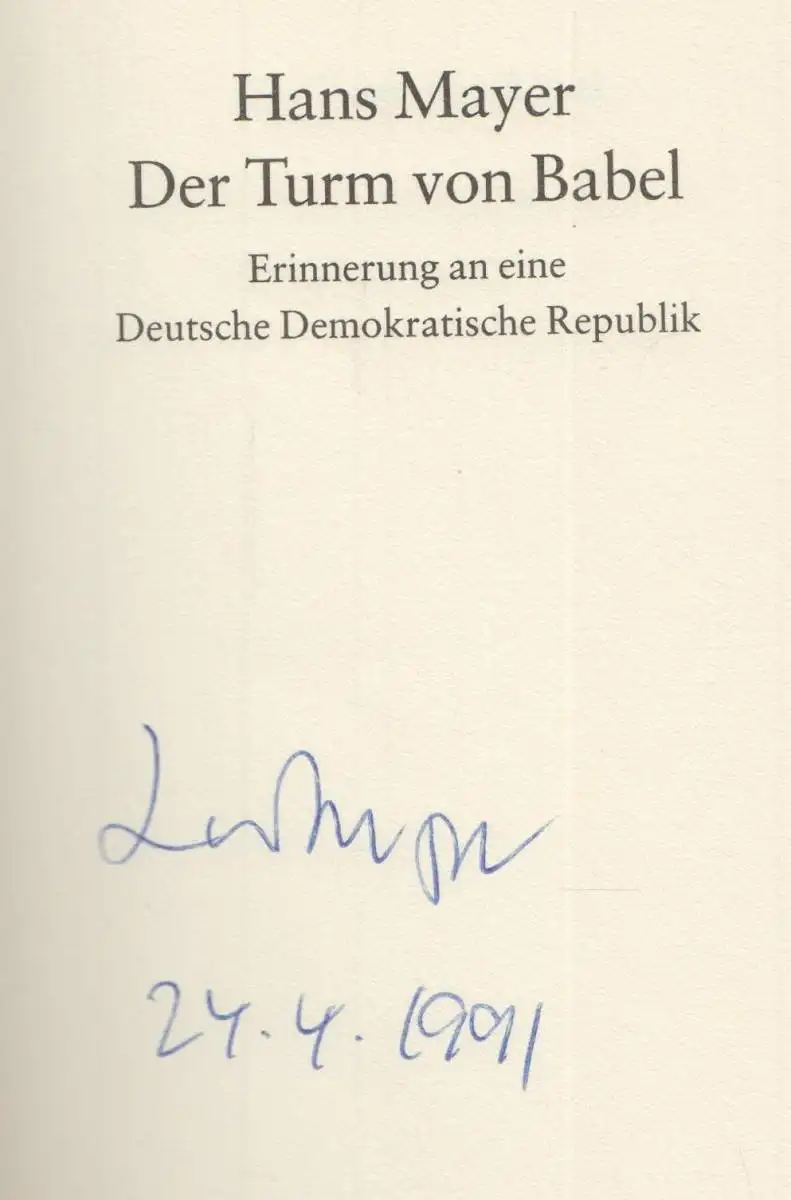 Hans Mayer
Der Turm von Babel
Erinnerung an eine
Deutsche Demokratische Republik
24.4.1991